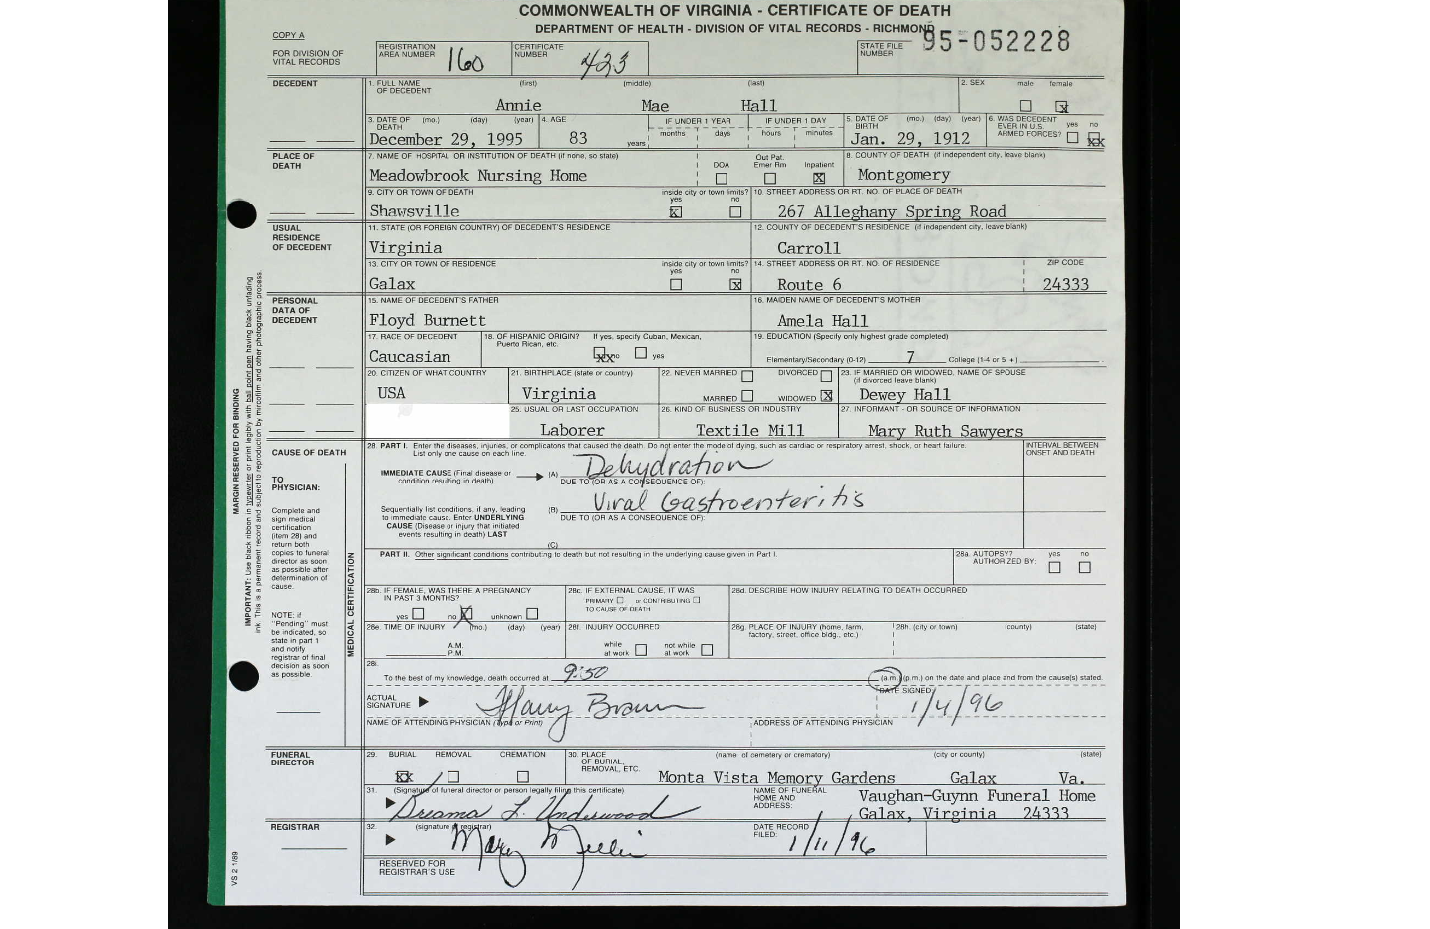 COMMONWEALTH OF VIRGINIA - CERTIFICATE OF DEATH
DEPARTMENT OF HEALTH - DIVISION OF VITAL RECORDS - RICHMOND
95-052228
COPY A
FOR DIVISION OF VITAL RECORDS
REGISTRATION AREA NUMBER 160
CERTIFICATE NUMBER 423
STATE FILE NUMBER
DECEDENT
1. FULL NAME OF DECEDENT (first) (middle) (last)
Annie Mae Hall
2. SEX male female
3. DATE OF DEATH (mo.) (day) (year)
December 29, 1995
4. AGE 83 years
IF UNDER 1 YEAR months days
IF UNDER 1 DAY hours minutes
5. DATE OF BIRTH (mo.) (day) (year)
Jan. 29, 1912
6. WAS DECEDENT EVER IN U.S. ARMED FORCES? yes no
PLACE OF DEATH
7. NAME OF HOSPITAL OR INSTITUTION OF DEATH (if none, so state)
Meadowbrook Nursing Home
DOA Out Pat. Emer Rm Inpatient
8. COUNTY OF DEATH (if independent city, leave blank)
Montgomery
9. CITY OR TOWN OF DEATH inside city or town limits? yes no
Shawsville
10. STREET ADDRESS OR RT. NO. OF PLACE OF DEATH
267 Alleghany Spring Road
USUAL RESIDENCE OF DECEDENT
11. STATE (OR FOREIGN COUNTRY) OF DECEDENT'S RESIDENCE
Virginia
12. COUNTY OF DECEDENT'S RESIDENCE (if independent city, leave blank)
Carroll
13. CITY OR TOWN OF RESIDENCE inside city or town limits? yes no
Galax
14. STREET ADDRESS OR RT. NO. OF RESIDENCE ZIP CODE
Route 6 24333
PERSONAL DATA OF DECEDENT
15. NAME OF DECEDENT'S FATHER
Floyd Burnett
16. MAIDEN NAME OF DECEDENT'S MOTHER
Amela Hall
17. RACE OF DECEDENT
Caucasian
18. OF HISPANIC ORIGIN? If yes, specify Cuban, Mexican, Puerto Rican, etc.
no yes
19. EDUCATION (Specify only highest grade completed)
Elementary/Secondary (0-12) 7 College (1-4 or 5 +)
20. CITIZEN OF WHAT COUNTRY
USA
21. BIRTHPLACE (state or country)
Virginia
22. NEVER MARRIED DIVORCED
MARRIED WIDOWED
23. IF MARRIED OR WIDOWED, NAME OF SPOUSE (if divorced leave blank)
Dewey Hall
25. USUAL OR LAST OCCUPATION
Laborer
26. KIND OF BUSINESS OR INDUSTRY
Textile Mill
27. INFORMANT - OR SOURCE OF INFORMATION
Mary Ruth Sawyers
CAUSE OF DEATH
TO PHYSICIAN:
Complete and sign medical certification (item 28) and return both copies to funeral director as soon as possible after determination of cause.
NOTE: if "Pending" must be indicated, so state in part 1 and notify registrar of final decision as soon as possible.
MEDICAL CERTIFICATION
28. PART I. Enter the diseases, injuries, or complicatons that caused the death. Do not enter the mode of dying, such as cardiac or respiratory arrest, shock, or heart failure. List only one cause on each line.
INTERVAL BETWEEN ONSET AND DEATH
IMMEDIATE CAUSE (Final disease or condition resulting in death) (A) Dehydration
DUE TO (OR AS A CONSEQUENCE OF):
Sequentially list conditions, if any, leading to immediate cause. Enter UNDERLYING CAUSE (Disease or injury that initiated events resulting in death) LAST
(B) Viral Gastroenteritis
DUE TO (OR AS A CONSEQUENCE OF):
(C)
PART II. Other significant conditions contributing to death but not resulting in the underlying cause given in Part I.
28a. AUTOPSY? yes no
AUTHORIZED BY:
28b. IF FEMALE, WAS THERE A PREGNANCY IN PAST 3 MONTHS?
yes no unknown
28c. IF EXTERNAL CAUSE, IT WAS
PRIMARY or CONTRIBUTING
TO CAUSE OF DEATH
28d. DESCRIBE HOW INJURY RELATING TO DEATH OCCURRED
28e. TIME OF INJURY (mo.) (day) (year)
A.M.
P.M.
28f. INJURY OCCURRED
while at work not while at work
28g. PLACE OF INJURY (home, farm, factory, street, office bldg., etc.)
28h. (city or town) county) (state)
28i.
To the best of my knowledge, death occurred at 9:50 (a.m.) (p.m.) on the date and place and from the cause(s) stated.
ACTUAL SIGNATURE Harry Braun
DATE SIGNED: 1/4/96
NAME OF ATTENDING PHYSICIAN (Type or Print)
ADDRESS OF ATTENDING PHYSICIAN
FUNERAL DIRECTOR
29. BURIAL REMOVAL CREMATION
30. PLACE OF BURIAL, REMOVAL, ETC. (name of cemetery or crematory) (city or county) (state)
Monta Vista Memory Gardens Galax Va.
31. (Signature of funeral director or person legally filing this certificate)
Dreama L. Underwood
NAME OF FUNERAL HOME AND ADDRESS:
Vaughan-Guynn Funeral Home
Galax, Virginia 24333
REGISTRAR
32. (signature of registrar)
DATE RECORD FILED: 1/11/96
RESERVED FOR REGISTRAR'S USE
MARGIN RESERVED FOR BINDING
IMPORTANT: Use black ribbon in typewriter or print legibly with ball point pen having black unfading ink. This is a permanent record and subject to reproduction by mircofilm and other photographic process.
VS 2 1/89